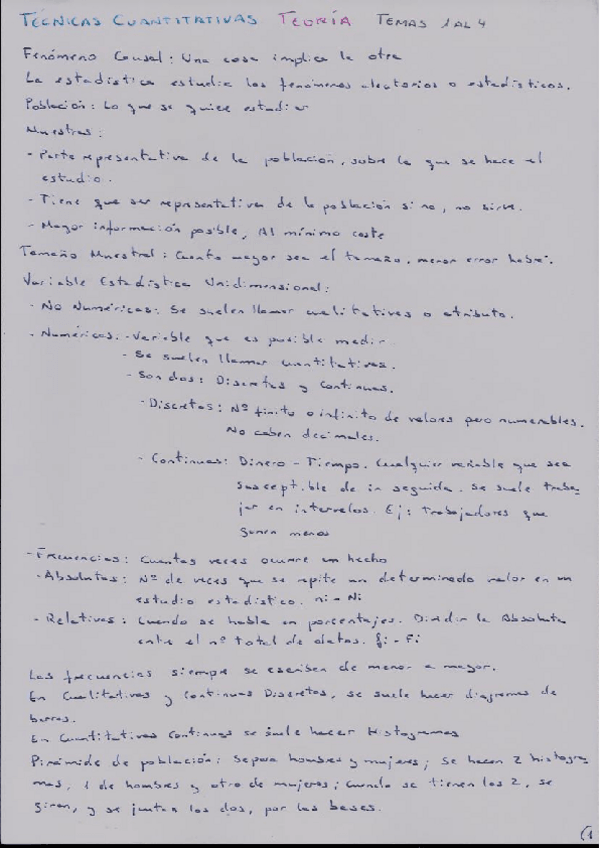 TÉCNICAS CUANTITATIVAS TEORÍA TEMAS 1 AL 4
Fenómeno Causal: Una cosa implica la otra
La estadística estudia los fenómenos aleatorios o estadísticos.
Población: Lo que se quiere estudiar
Muestras:
- Parte representativa de la población, sobre la que se hace el
estudio.
- Tiene que ser representativa de la población si no, no sirve.
- Mayor información posible, Al mínimo coste
Tamaño Muestral: Cuanto mayor sea el tamaño, menor error habrá.
Variable Estadística Unidimensional:
- No Numéricas: Se suelen llamar cualitativas o atributo.
- Numéricas: - Variable que es posible medir
- Se suelen llamar cuantitativas.
- Son dos: Discretas y Continuas.
- Discretas: Nº finito o infinito de valores pero numerables.
No caben decimales.
- Continuas: Dinero - Tiempo. Cualquier variable que sea
suscept.ble de in seguida. Se suele traba-
jar en intervalos. Ej: Trabajadores que
ganen menos
- Frecuencias: Cuantas veces ocurre un hecho
- Absolutas: Nº de veces que se repite un determinado valor en un
estudio estadístico. ni - Ni
- Relativas: Cuando se habla en porcentajes. Dividir la Absoluta
entre el nº total de datos. fi - Fi
Las frecuencias siempre se escriben de menor a mayor.
En Cualitativas y Continuas Discretas, se suele hacer diagramas de
barras.
En Cuantitativas Continuas se suele hacer Histogramas
Pirámide de población: Separa hombres y mujeres; Se hacen 2 histogra-
mas, 1 de hombres y otro de mujeres; cuando se tienen los 2, se
giran, y se juntan los dos, por las bases.
(1